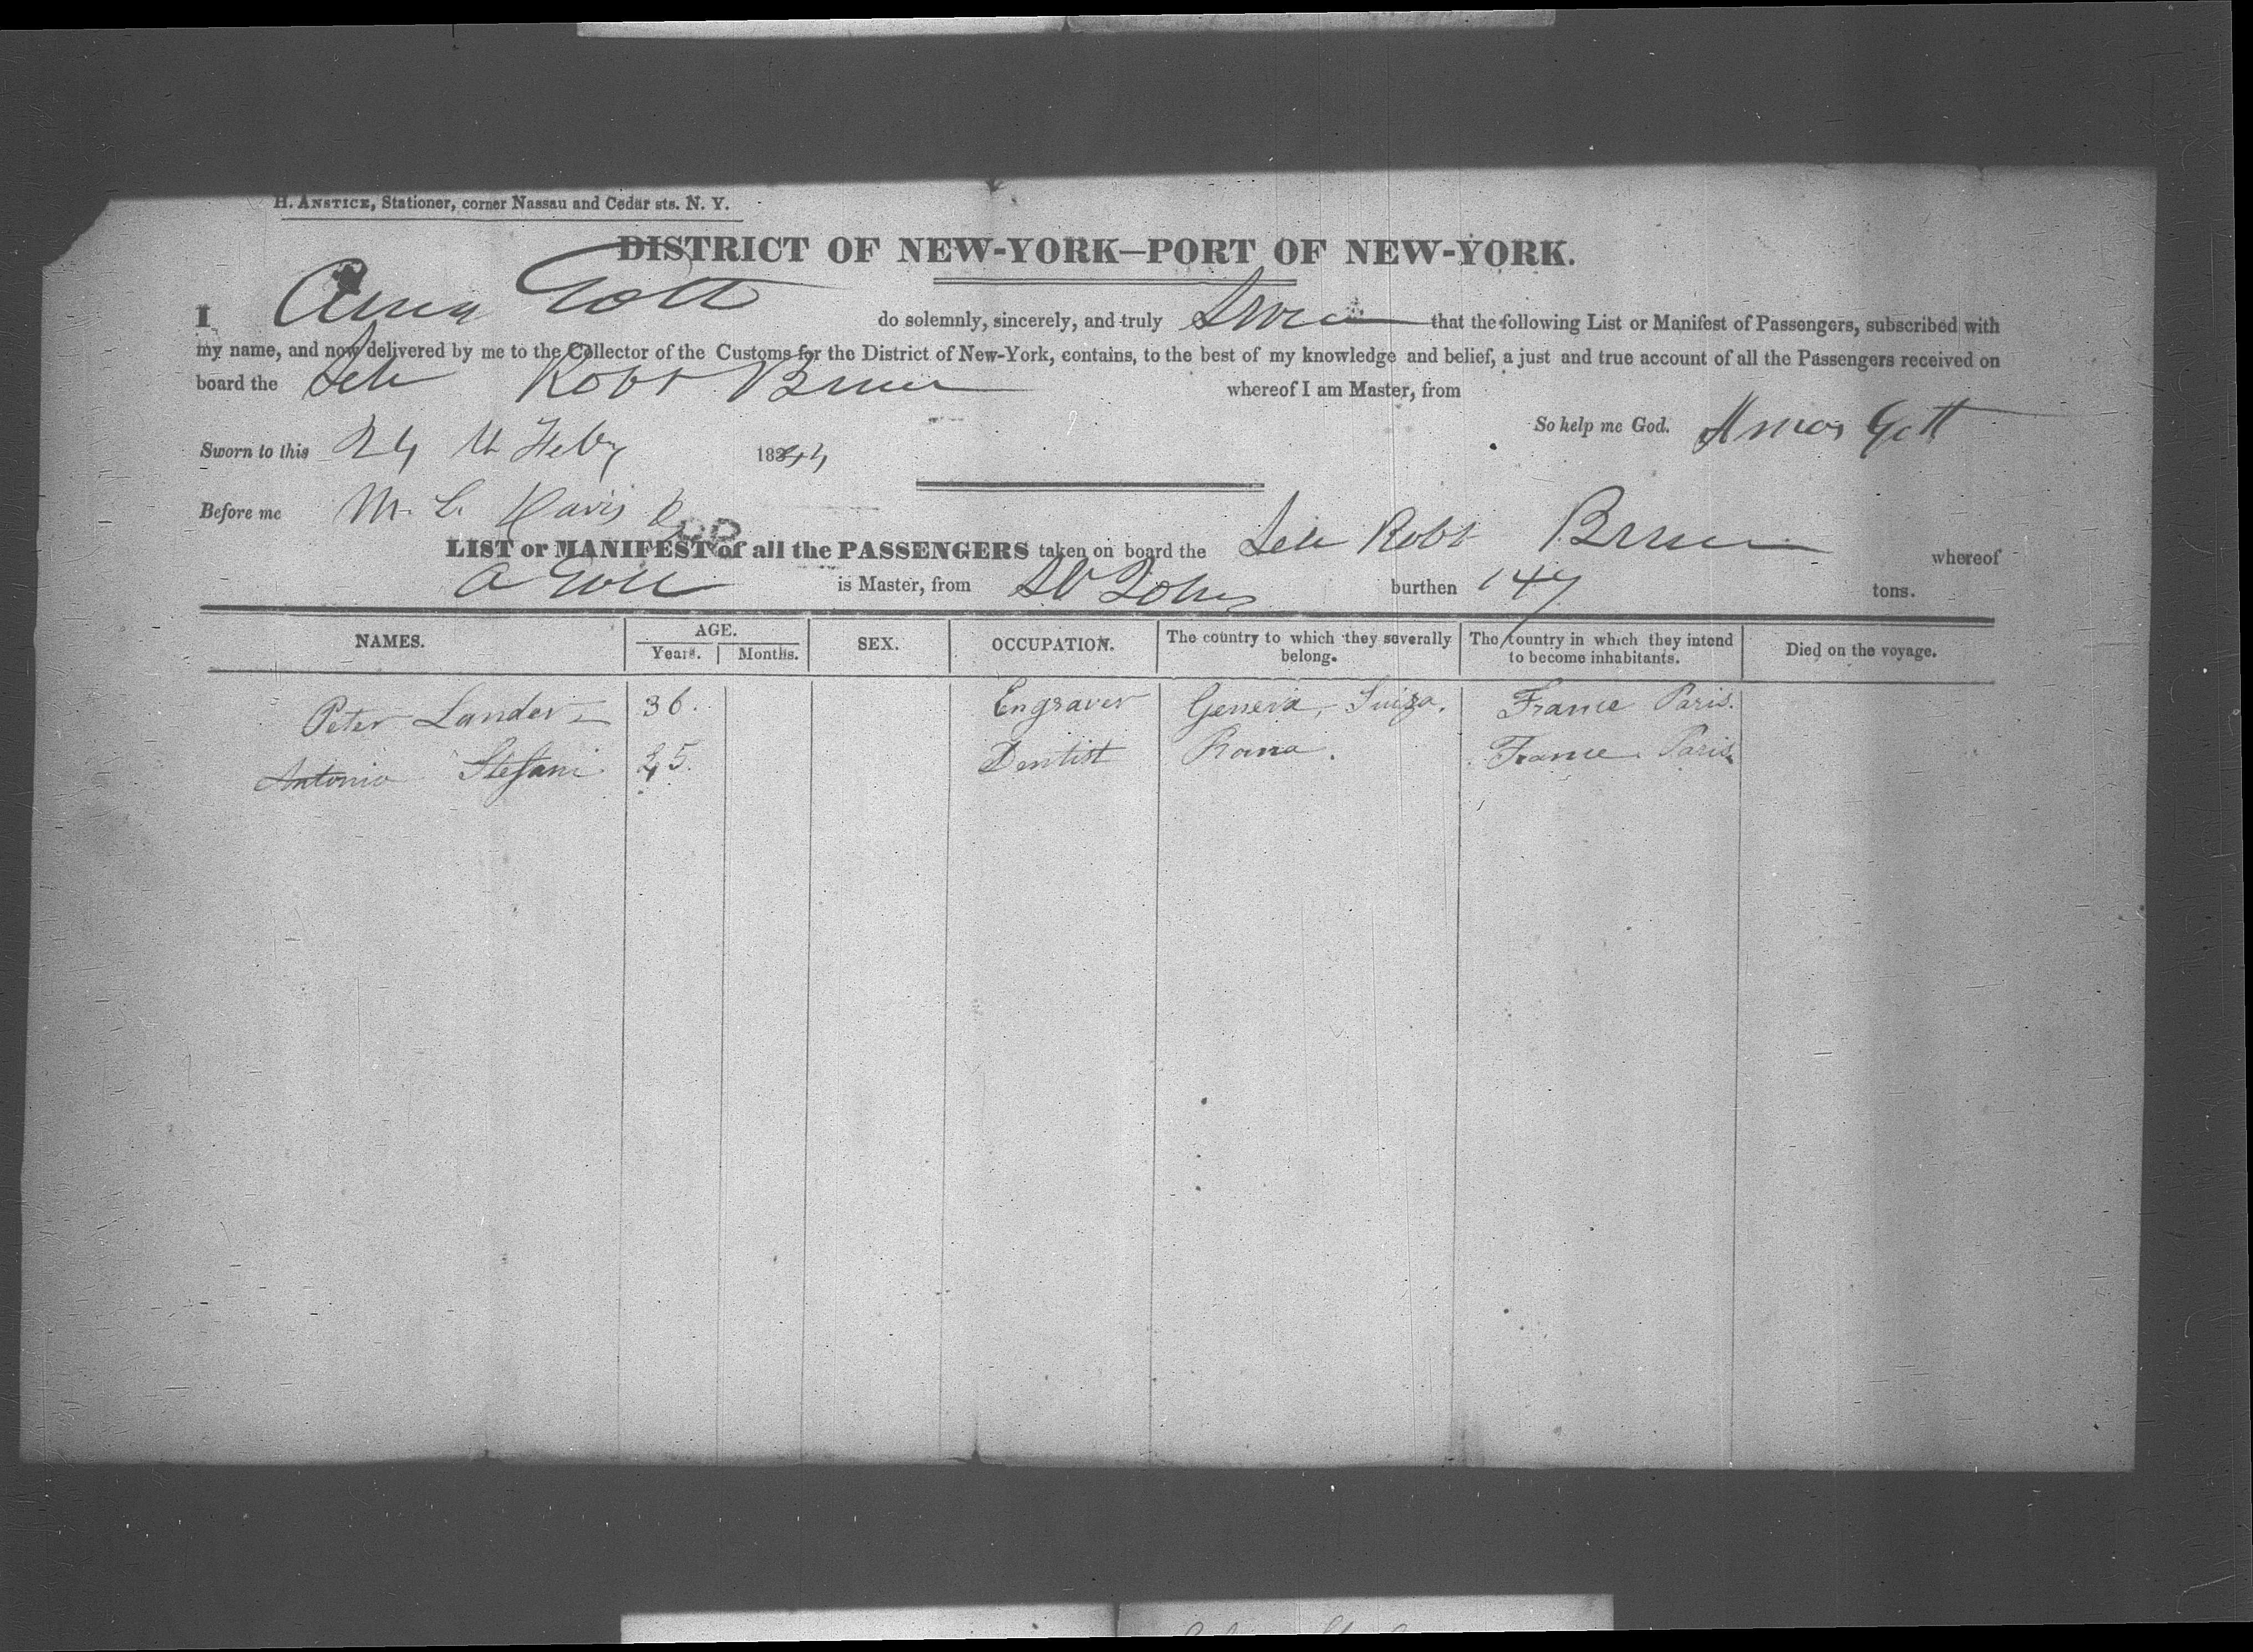 H. ANSTICE, Stationer, corner Nassau and Cedar sts. N. Y.
DISTRICT OF NEW-YORK—PORT OF NEW-YORK.
I Amos Gott do solemnly, sincerely, and truly Swear that the following List or Manifest of Passengers, subscribed with
my name, and now delivered by me to the Collector of the Customs for the District of New-York, contains, to the best of my knowledge and belief, a just and true account of all the Passengers received on
board the Sch Robt whereof I am Master, from
So help me God. Amos Gott
Sworn to this 24 th Feby 1844
Before me M. L. Davis
LIST or MANIFEST of all the PASSENGERS taken on board the Sch Robt whereof
A Gott is Master, from St Johns burthen 147 tons.
NAMES. AGE. SEX. OCCUPATION. The country to which they severally belong. The country in which they intend to become inhabitants. Died on the voyage.
Years. Months.
Peter Lander 36. Engraver Geneva, Suiza. France Paris.
Antonio Stefani 25. Dentist Roma. France Paris.